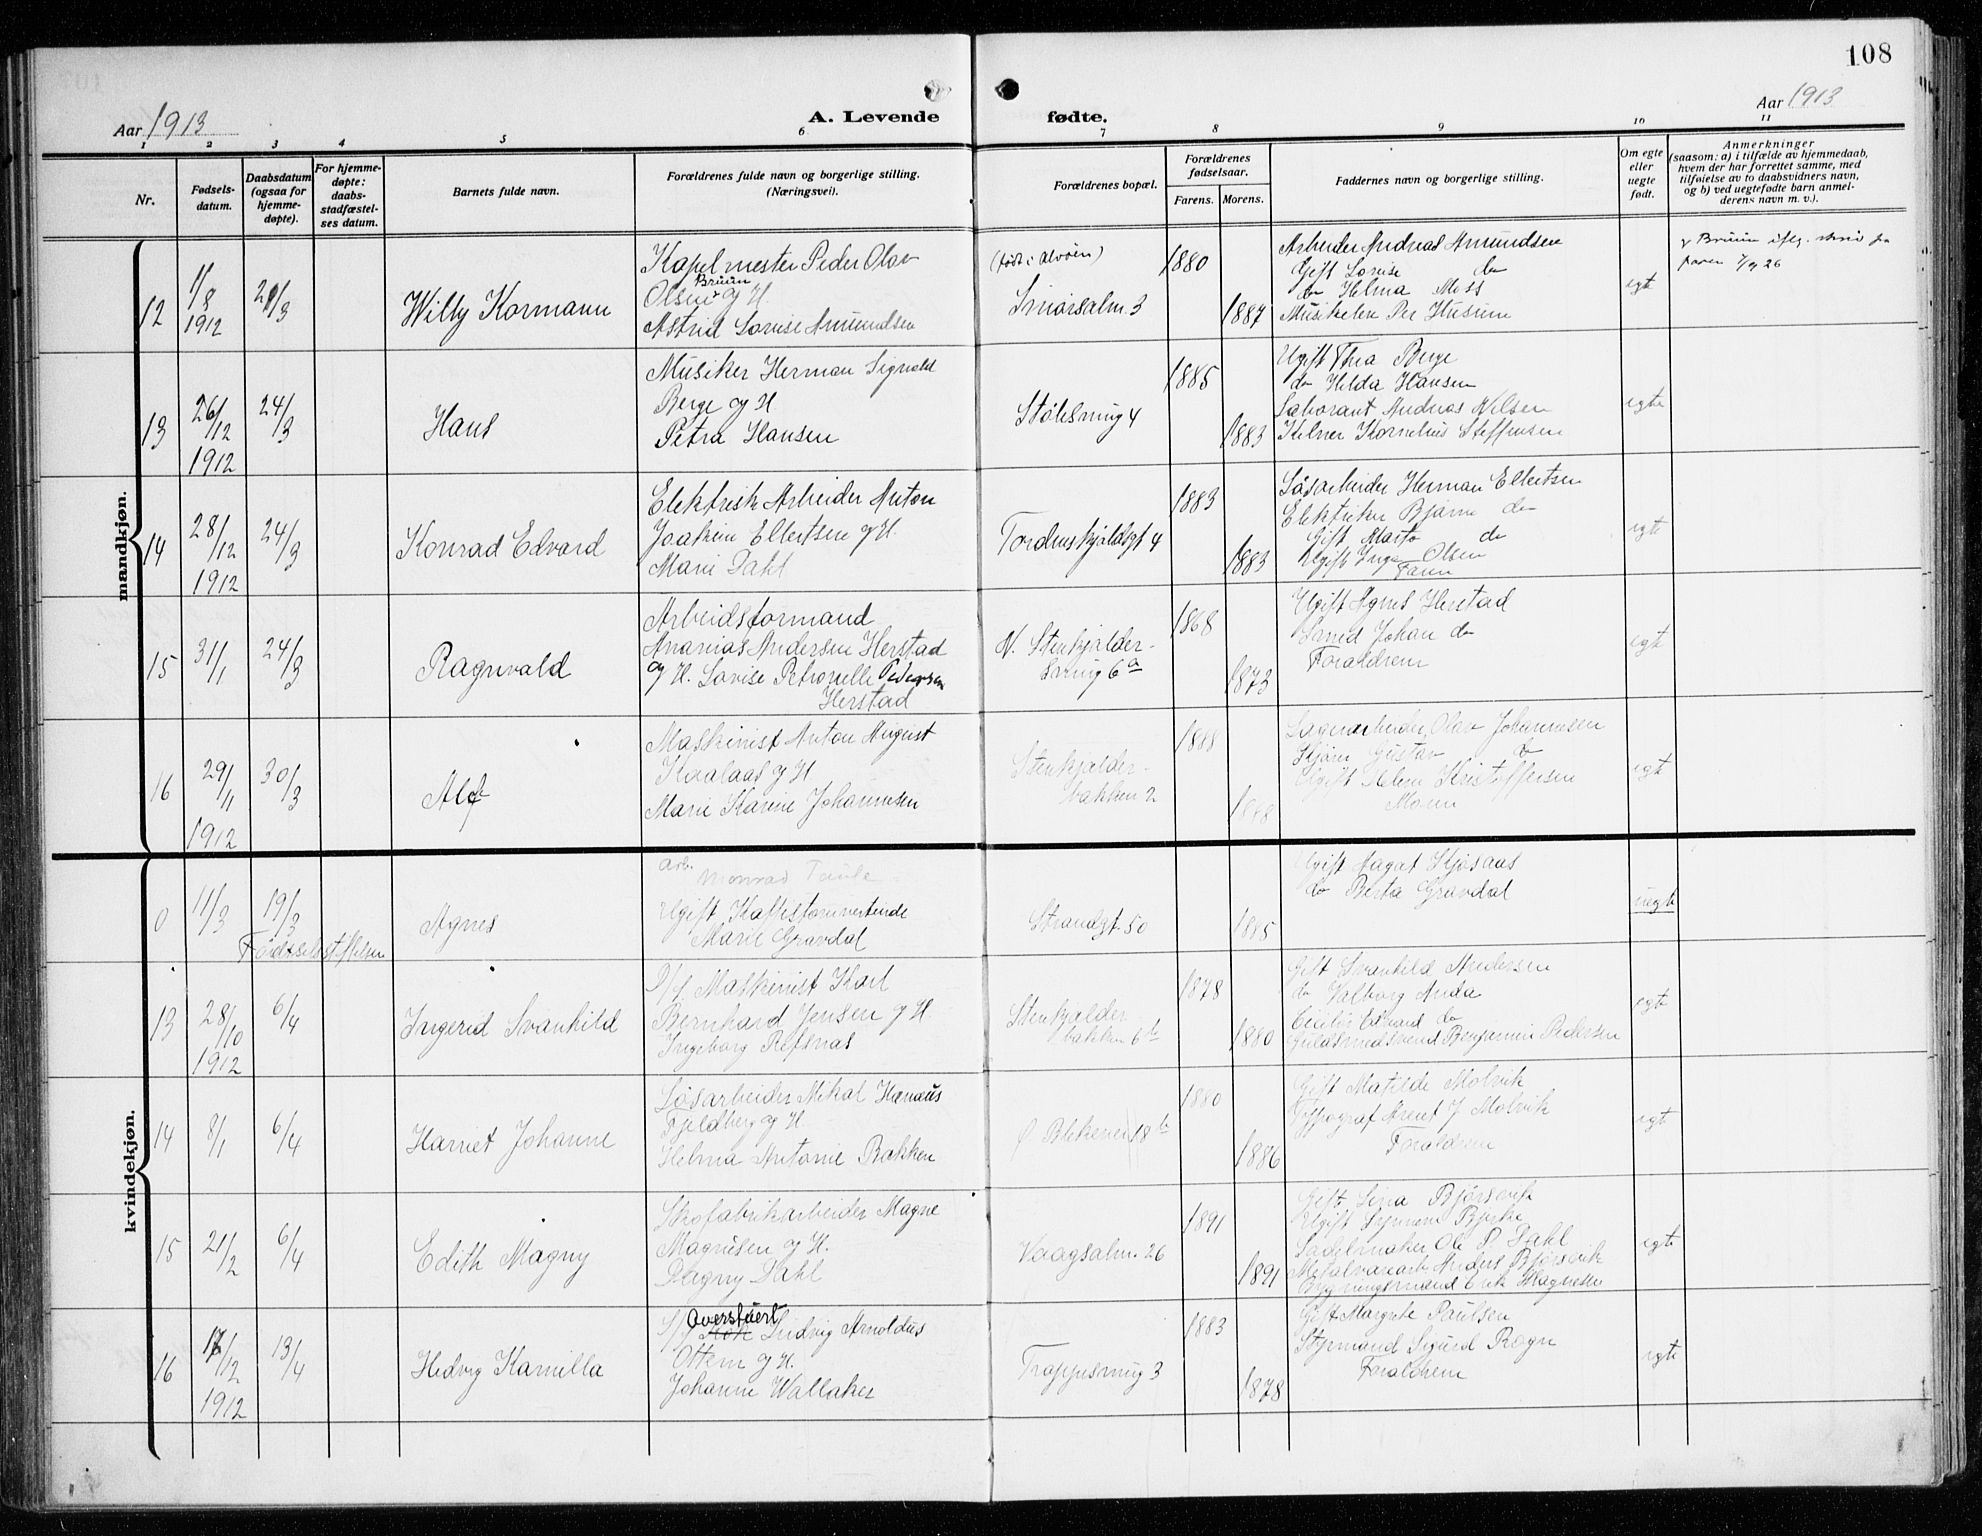 108
Aar 1913
A. Levende fødte.
Aar 1913
1 2 3 4 5 6 7 8 9 10 11
Nr.
Fødsels-
datum.
Daabsdatum
(ogsaa for
hjemme-
døpte).
For hjemme-
døpte:
daabs-
stadfæstel-
ses datum.
Barnets fulde navn.
Forældrenes fulde navn og borgerlige stilling.
(Næringsvei).
Forældrenes bopæl.
Forældrenes
fødselsaar.
Farens. Morens.
Faddernes navn og borgerlige stilling.
Om egte
eller
uegte
født.
Anmerkninger
(saasom: a) i tilfælde av hjemmedaab,
hvem der har forrettet samme, med
tilføielse av to daabsvidners navn,
og b) ved uegtefødte barn anmel-
derens navn m. v.).
mandkjøn.
12
1/8
1912
21/3
Willy Kormann
Kapelmester Peder Olav
Bruun
Olsen og H.
Astrid Lovise Amundsen
(født i Alvøen)
Smørsalm. 3
1880
1887
Arbeider Andreas Amundsen
Gift Lovise do
do Helma Moss
Musikelev Per Husum
egt
Bruun iflg. skriv fra
faren 7/9 26
13
26/12
1912
24/3
Hans
Musiker Herman Sigvald
Berge og H.
Petra Hansen
Stølesmug 4
1885
1883
Ugift Thea Berge
do Hilda Hansen
Laborant Andreas Nilsen
Kelner Kornelius Steffensen
egte
14
28/12
1912
24/3
Konrad Edvard
Elektrisk Arbeider Anton
Joakim Ellertsen og H.
Marie Dahl
Tordenskjoldsgt 4
1883
1883
Løsarbeider Herman Ellertsen
Elektriker Bjarne do
Gift Marta do
Ugift Inga Olsen
Faren
egte
15
31/1
24/3
Ragnvald
Arbeidsformand
Ananias Andersen Herstad
og H. Lovise Petronelle Pedersen
Herstad
N. Stenkjelder-
smug 6a
1868
1873
Ugift Agnes Herstad
Smed Johan do
Forældrene
egte
16
29/11
1912
30/3
Alf
Maskinist Anton August
Kaalaas og H.
Marie Karine Johannesen
Stenkjelder-
bakken 2
1888
1888
Lagerarbeider Olav Johannesen
Gustav do
Ugift Kristoffersen
Moren
egte
kvindekjøn.
0
11/3
19/3
Fødselsstiftelsen
Agnes
Arb.
Monrad
Ugift
Marie Gravdal
Strandgt. 50
1885
Ugift Magat
do Berta Gravdal
uegte
13
28/10
1912
6/4
Ingerid Svanhild
D/S Maskinist Karl
Bernhard Jensen og H.
Ingeborg Refsnæs
Stenkjelder
bakken 6b
1878
1880
Gift Svanhild Andersen
do Valborg Anda
Edvard do
Guldsmedsvend Benjamin Pedersen
egte
14
8/1
6/4
Harriet Johanne
Løsarbeider Mikal
Fjeldberg og H.
Helma Antonie Bakken
Ø. Blekevei 18b
1880
1886
Gift Matilde Molvik
Typograf Arent J Molvik
Forældrene
egt
15
21/2
6/4
Edith Magny
Skofabrikarbeider Magne
Magnusen og H.
Dagny Dahl
Vaagsalm. 26
1891
1891
Gift Lina Bjørsvik
Ugift
Sadelmaker Ole P. Dahl
Metalvarearb Anders Bjørsvik
Erik Magnesen
egte
16
17/12
1912
13/4
Hedvig Kamilla
Overstuert
S/S Ludvig Arnoldus
Ottem og H.
Johanne Wallaker
Trappesmug 3
1883
1878
Gift Margrete Paulsen
Styrmand Sigurd Rogn
Forældrene
egte